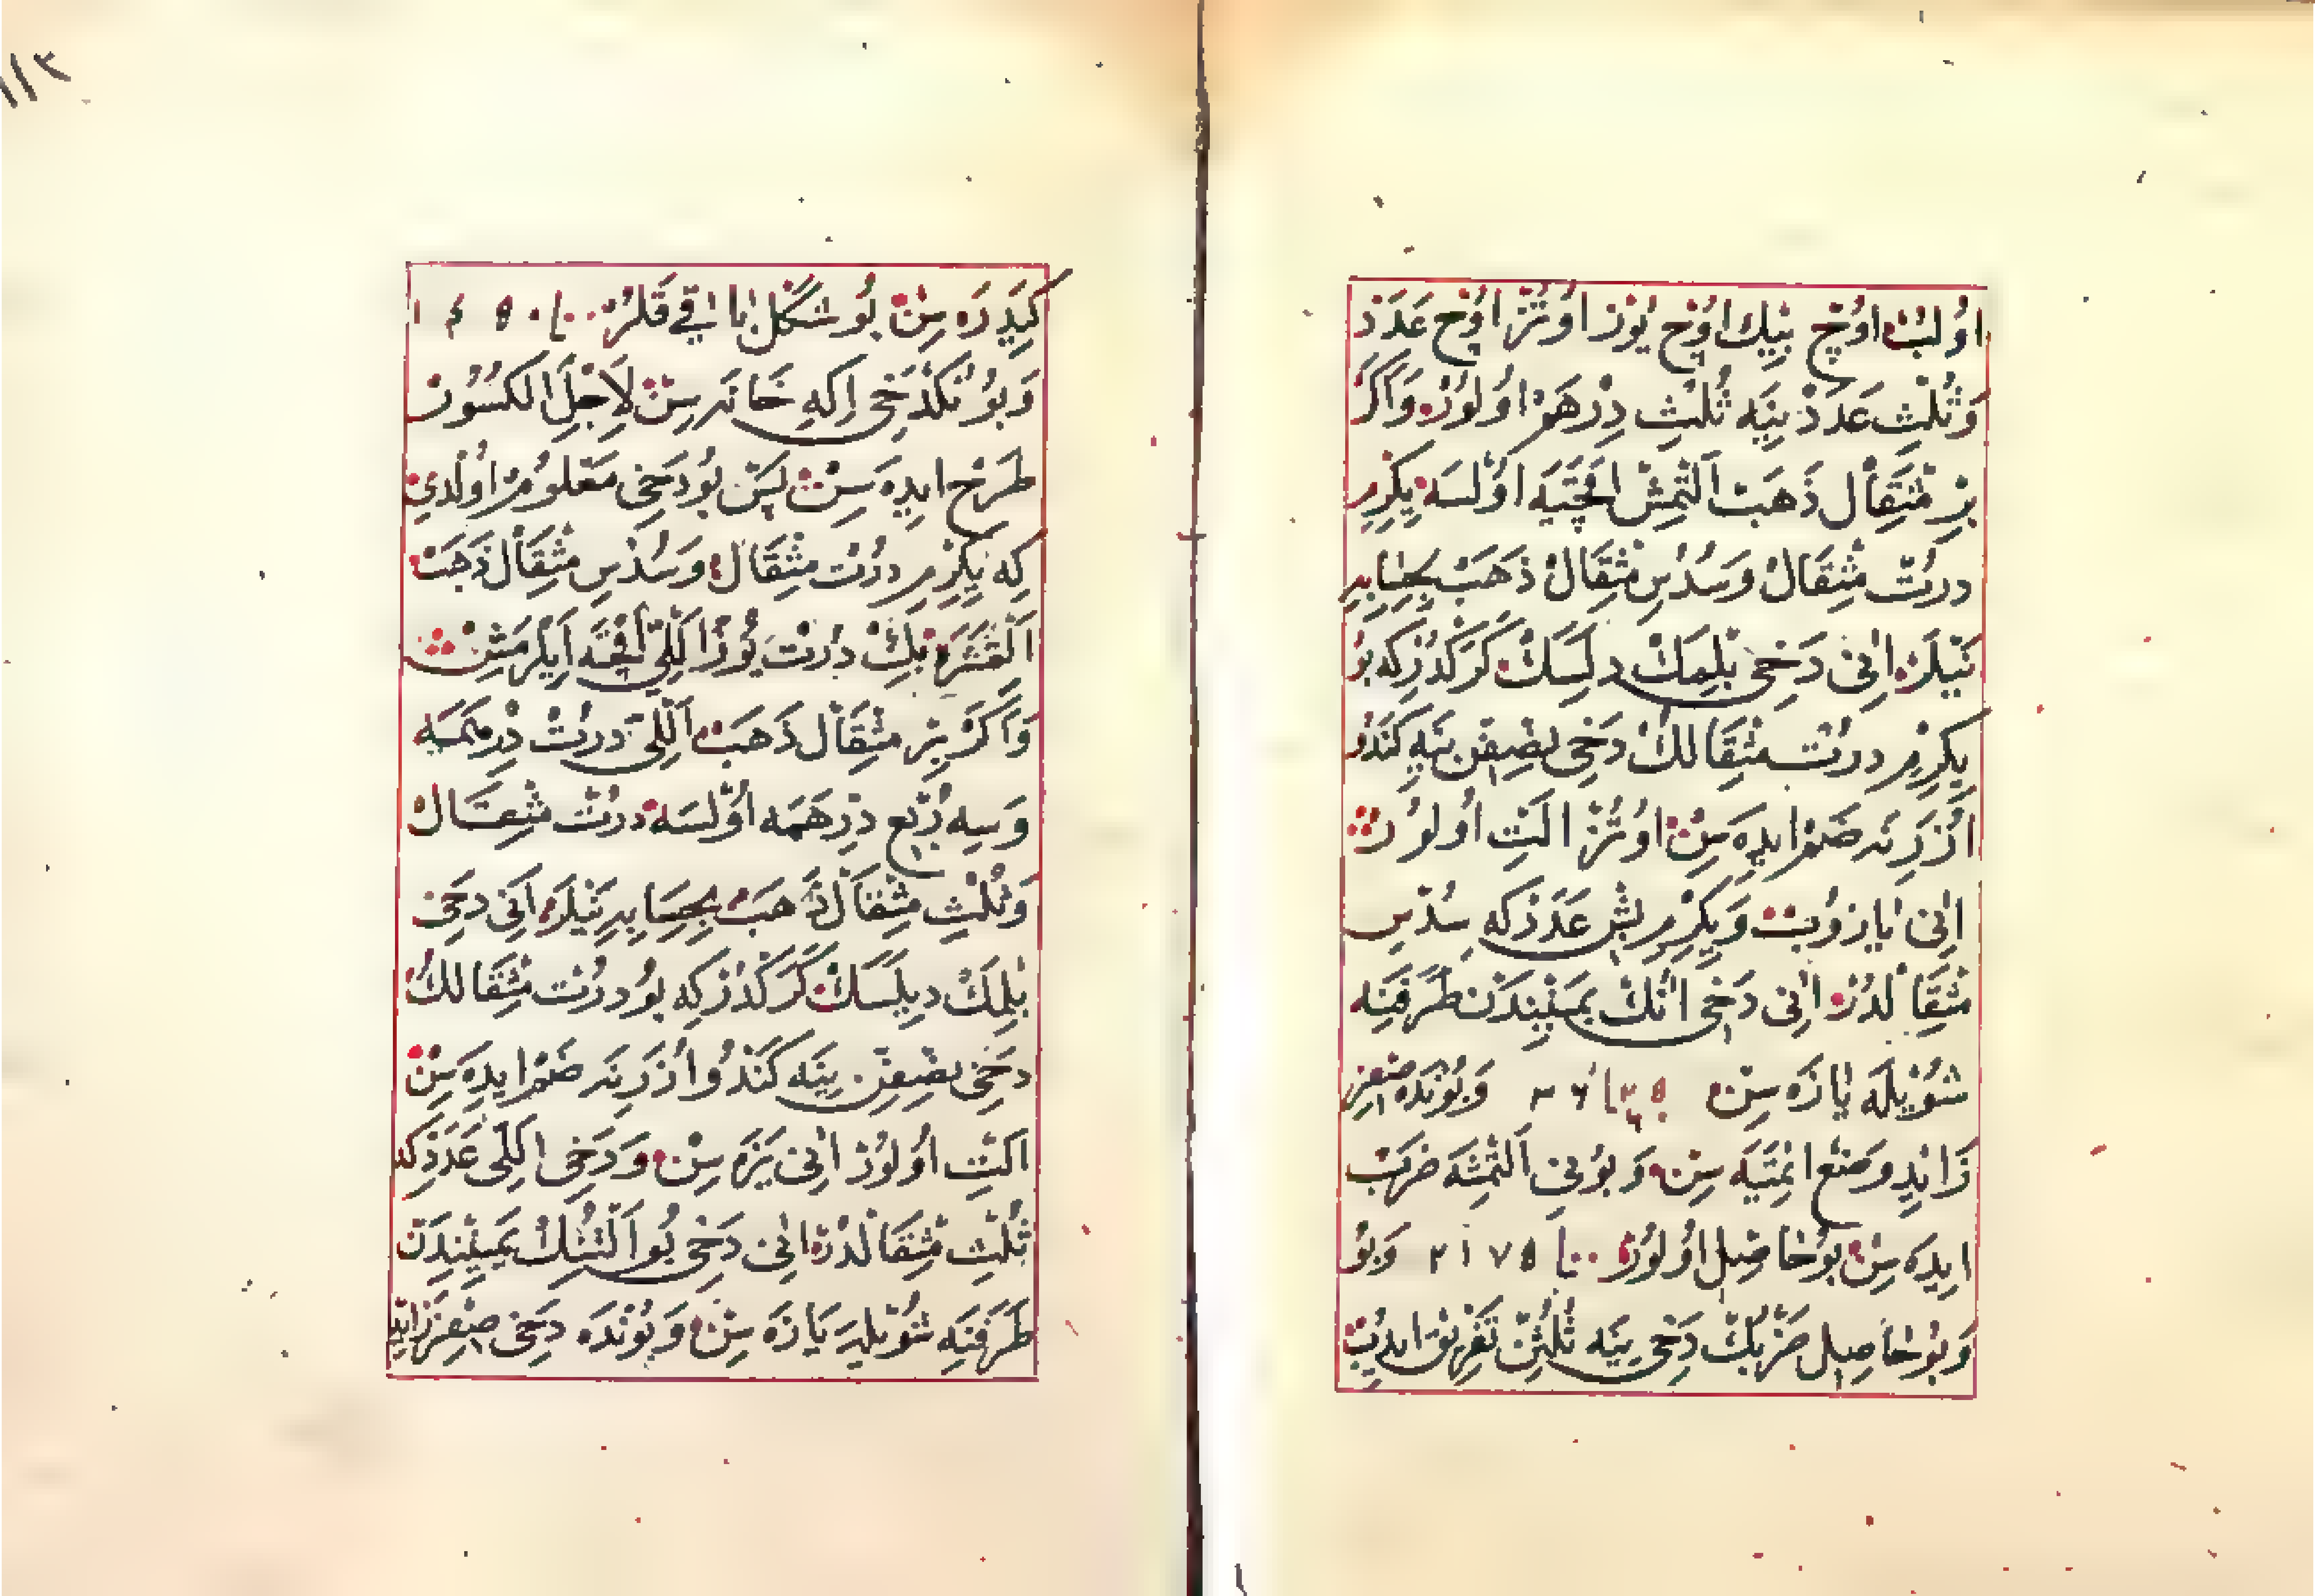 اُولُبْ اوُچْ بِيكْ اوُچْ يُوزْ اوُتُزْ اوُچْ عَدَدْ
وَثُلْثِ عَدَدْ يِنَه ثُلْثِ دِرْهَمْ اوُلوُرْ وَاَكَرْ
بِرْ مِثْقَالْ ذَهَبْ اَلْتْمِشْ اَقْچَيَه اوُلْسَه يِكِرْمِ
دورْتْ مِثْقَالْ وَسُدْسِ مِثْقَالْ ذَهَبْ بِحِسَابِ
نَيْلَرْ اَنِى دَخِى بِلْمَكْ دِلَسَكْ كَرَكْدُرْكِه بُو
يِكِرْمِ دورْتْ مِثْقَالِكْ دَخِى نِصْفِنْ يِنَه كَنْدُو
اُزْرِنَه ضَمْ ايدَه سِنْ اوُتُزْ اَلْتِ اوُلوُرْ
اَنِى يَازُوبْ وَيِكِرْمِ بِشْ عَدَدْ كِه سُدْسِ
مِثْقَالْدُرْ اَنِى دَخِى اَنُكْ يَمِينِنْدَنْ طَرَفِنَه
شُويْلَه يَازَه سِنْ ٣٦ تا ٢٥ وَبُونْدَه صِفِرْ
زَائِدِ وَضْعْ اِتْمَيَه سِنْ وَبُونِى اَلْتْمِشَه ضَرْبْ
ايدَه سِنْ بُو حَاصِلْ اوُلوُرْ ٢١٧٥ تا ٠٠ وَبُو
وَبُو حَاصِلِ ضَرْبُكْ دَخِى يِنَه ثُلْثِنْ تَفْرِيقْ ايدُبْ
١١٢
كِيدَرَه سِنْ بُو شَكِلْ بَاقِى قَلُرْ ٠٠ تا ١٤٥٠
وَبُونُكْدَخِى اِكِه خَانَه سِنْ لِاَجْلِ الْكُسُورْ
طَرْحْ ايدَه سِنْ پَسْ بُو دَخِى مَعْلُومْ اوُلْدِى
كِه يِكِرْمِ دورْتْ مِثْقَالْ وَسُدْسِ مِثْقَالْ ذَهَبْ
بِكْ دورْتْ يُوزْ اَللِّى اَقْچَه ايكَرْمِشْ
وَاَكَرْ بِرْ مِثْقَالْ ذَهَبْ اَللِّى دورْتْ دِرْهَمَه
وَسِه رُبْعِ دِرْهَمَه اوُلْسَه دورْتْ مِثْقَالْ
وَثُلْثِ مِثْقَالْ ذَهَبْ بِحِسَابِ نَيْلَرْ اَنِى دَخِى
بِلْمَكْ دِيلَسَكْ كَرَكْدُرْكِه بُو دورْتْ مِثْقَالِكْ
دَخِى نِصْفِنْ يِنَه كَنْدُو اُزْرِنَه ضَمْ ايدَه سِنْ
اَلْتِ اوُلوُرْ اَنِى يَزَه سِنْ وَدَخِى اَللِّى عَدَدْ كِه
ثُلْثِ مِثْقَالْدُرْ اَنِى دَخِى بُو اَلْتِنُكْ يَمِينِنْدَنْ
طَرَفِنَه شُويْلَه يَازَه سِنْ وَبُونْدَه دَخِى صِفِرْ زَائِدِ